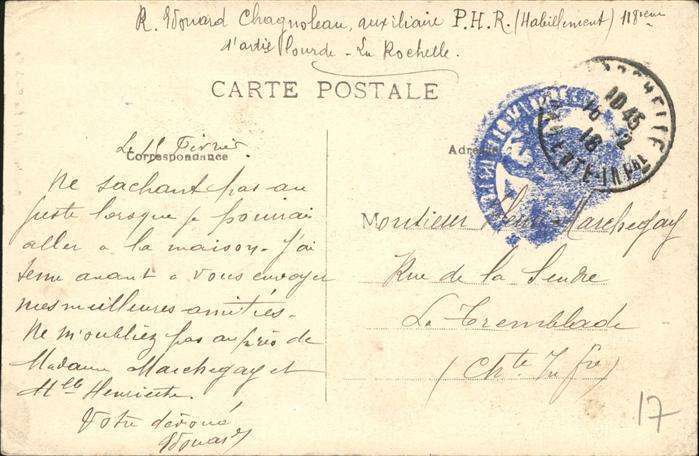 R. Edouard Chagnoleau, auxiliaire P.H.R. (Habillement) 118eme
d'artie lourde - La Rochelle.
CARTE POSTALE
Correspondance
Le Février
Ne sachant pas au
juste lorsque je pourrai
aller à la maison. J'ai
tenu avant à vous envoyer
mes meilleures amitiés.
Ne m'oubliez pas auprès de
Madame Marchegay et
Mlle Henriette.
Votre dévoué
Edouard
Monsieur Marchegay
Rue de la Seudre
La Tremblade
(Chte Infre)
10 45
16 2
18
17